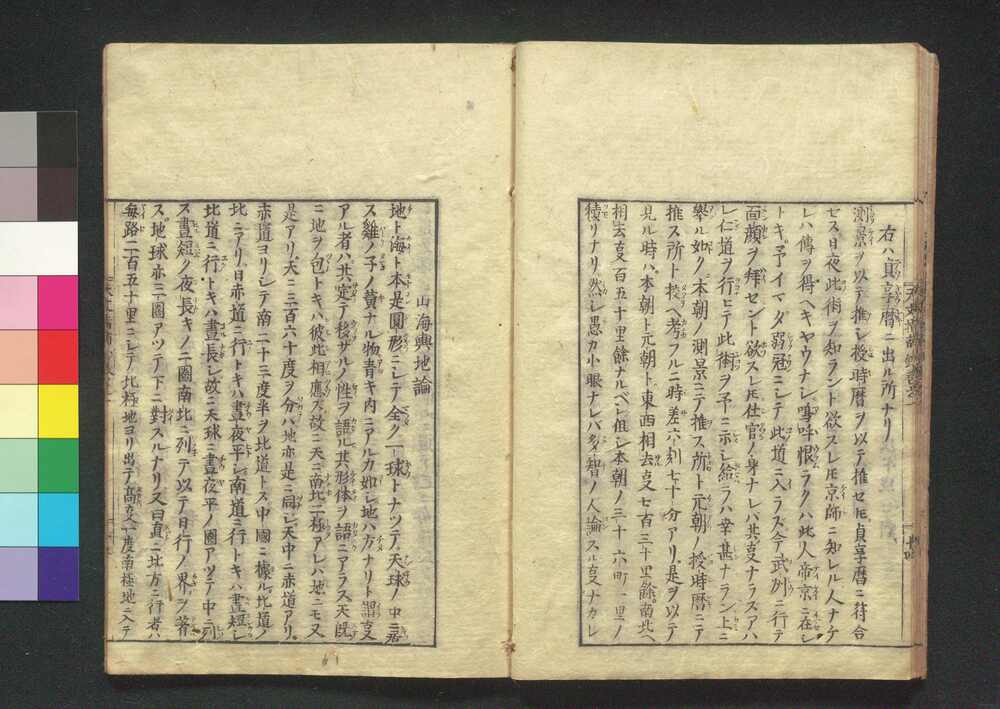 右ハ貞享暦ニ出ル所ナリ
測景ヲ以テ推シ授時暦ヲ以テ推セ𪜈貞享暦ニ符合
セス日夜此術ヲ知ラント欲スレ𪜈京師ニ知レル人ナケ
レハ傳ヲ得ヘキヤウナシ嗚呼恨ラクハ此人帝京ニ在シ
トキ予イマダ弱冠ニシテ此道ニ入ラス今武列ニ行テ
面顔ヲ拜セント欲スレ𪜈仕官ノ身ナレバ其叓ナラスアハ
レ仁道ヲ行ヒテ此術ヲ予ニ示シ給ラハ幸甚ナラン上ニ
擧ル如ク本朝ノ測景ニテ推ス所ト元朝ノ授時暦ニテ
推ス所ト挍ヘ考フルニ時差六刻七十分アリ是ヲ以テ
見ル時ハ本朝ト元朝ト東西相去叓七百三十里餘南北ヘ
相去叓百五十里餘ナルベシ但シ本朝ノ三十六町一里ノ
積リナリ然シ愚カ小眼ナレバ多智ノ人論スル叓ナカレ
山海輿地論
地ト海ト本是圓形ニシテ全ク一球トナツテ天球ノ中ニ居
ス雞ノ子ノ黄ナル物青キ内ニアルカ如シ地ハ方ナリト謂叓
アル者ハ其定テ移ザルノ性ヲ語ル其形体ヲ語ニアラス天既
ニ地ヲ包トキハ彼此相應ス故ニ天ニ南北二極アレハ地ニモ又
是アリ天ニ三百六十度ヲ分ハ地亦是ニ同シ天中ニ赤道アリ
赤道ヨリシテ南二十三度半ヲ北道トス中國ニ據ル北道ノ
北ニアリ日赤道ニ行トキハ晝夜平シ南道ニ行トキハ晝短シ
北道ニ行トキハ晝長シ故ニ天球ニ晝夜平ノ圏アツテ中ニ列
ス晝短ク夜長キノ二圏南北ニ列テ以テ日行ノ界ヲ著
ス地球亦三圏アツテ下ニ對スルナリ又曰直ニ北方ニ行者ハ
毎路二百五十里ニシテ北極地ヨリ出テ髙叓一度南極地ニ入テ